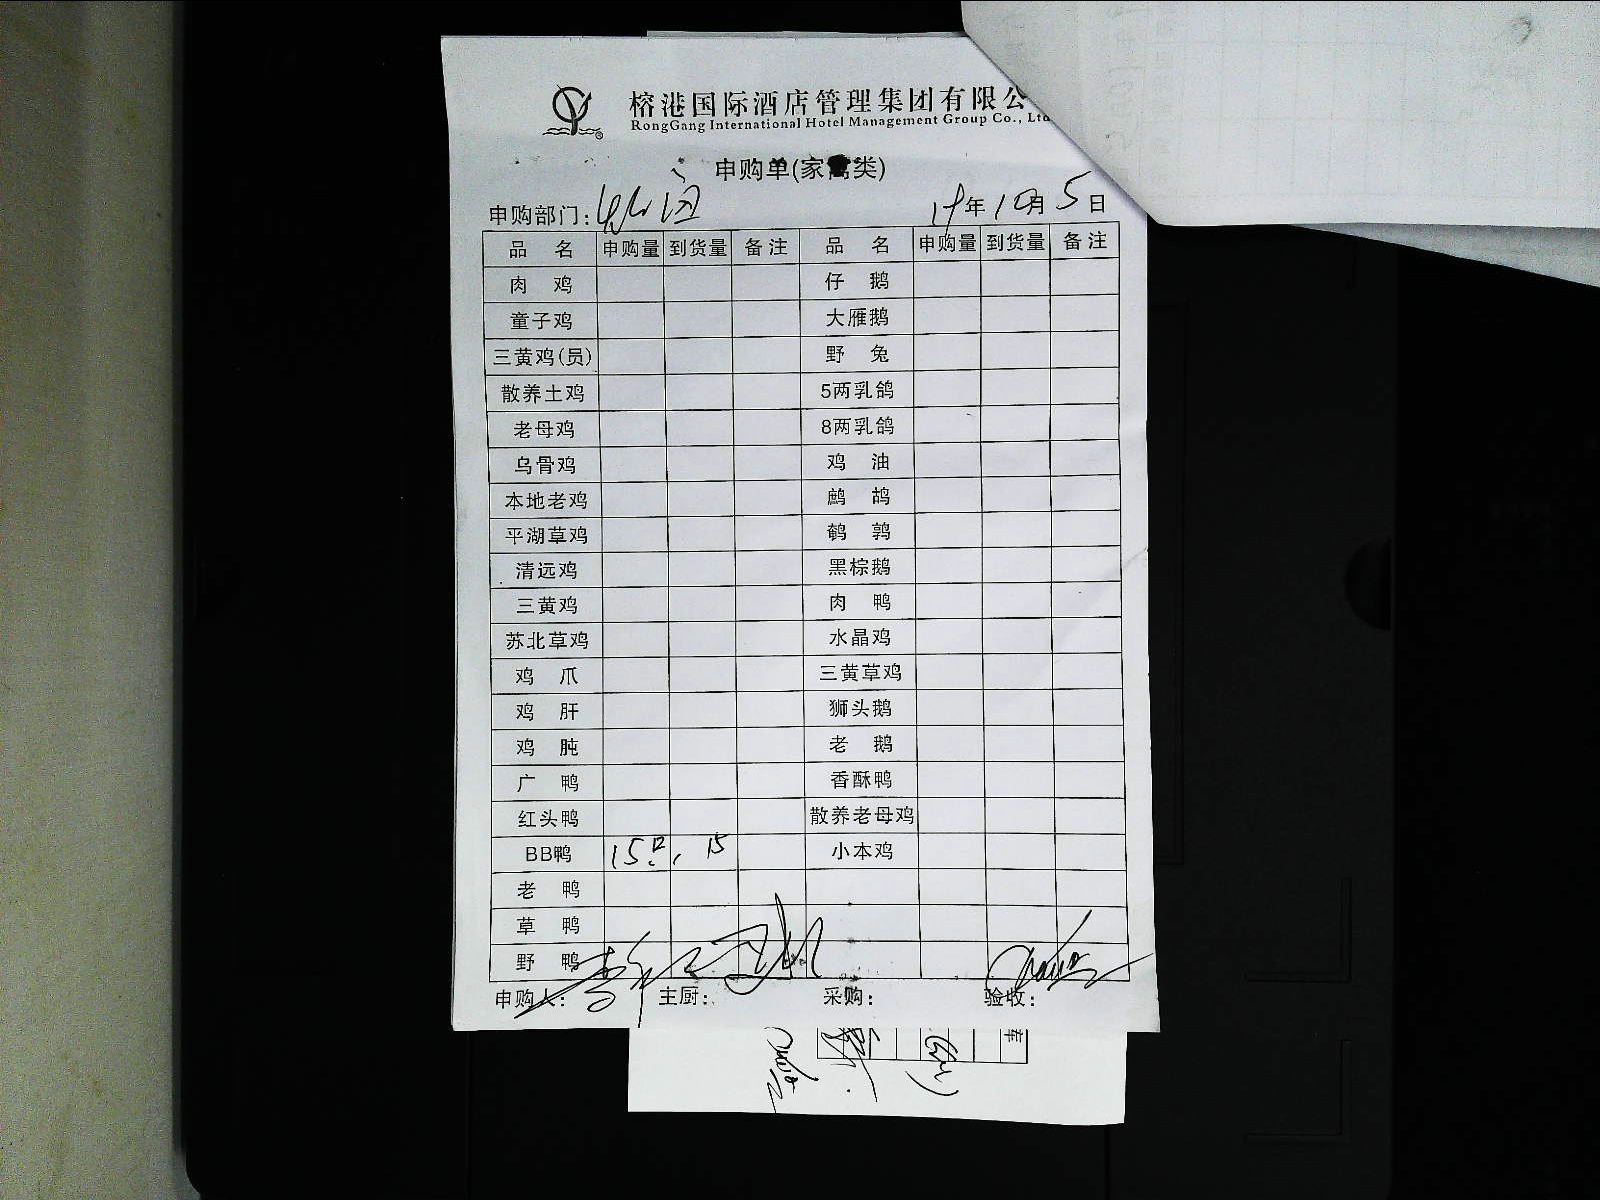 榕港国际酒店管理集团有限公
RongGang International Hotel Management Group Co., Ltd
申购单(家禽类)
申购部门: 年10月5日
品 名 申购量 到货量 备注 品 名 申购量 到货量 备注
肉 鸡 仔 鹅
童子鸡 大雁鹅
三黄鸡(员) 野 兔
散养土鸡 5两乳鸽
老母鸡 8两乳鸽
乌骨鸡 鸡 油
本地老鸡 鹧 鸪
平湖草鸡 鹌 鹑
清远鸡 黑棕鹅
三黄鸡 肉 鸭
苏北草鸡 水晶鸡
鸡 爪 三黄草鸡
鸡 肝 狮头鹅
鸡 肫 老 鹅
广 鸭 香酥鸭
红头鸭 散养老母鸡
BB鸭 15只, 15 小本鸡
老 鸭
草 鸭
野 鸭
申购人: 主厨: 采购: 验收: